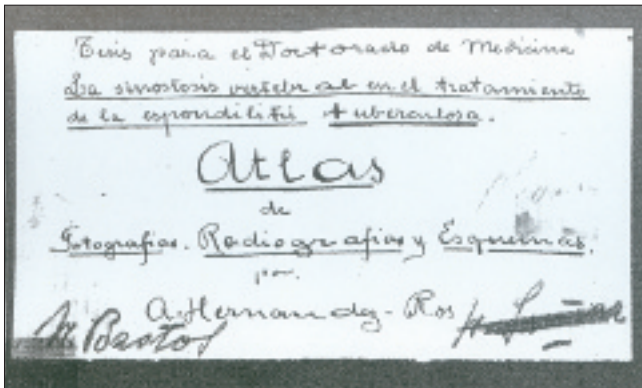 Tesis para el Doctorado de Medicina
La sinostosis vertebral en el tratamiento
de la espondilitis tuberculosa.
Atlas
de
Fotografias. Radiografias y Esquemas.
por.
A. Hernandez-Ros
M. Bastos